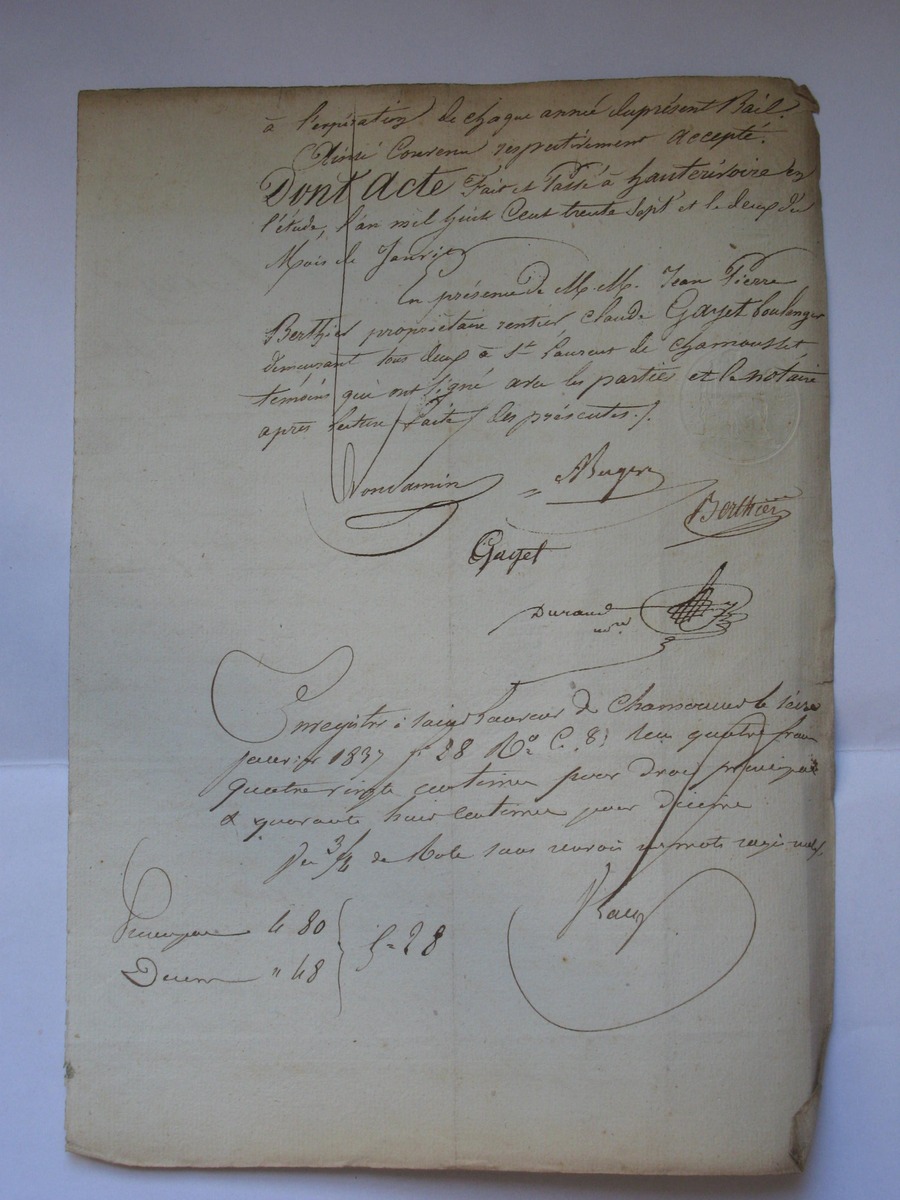 à l'expiration de chaque année du présent Bail.
Ainsi Convenu respectivement accepté.
Dont Acte Fait et Passé à hauterivoire en
l'étude, l'an mil huit Cent trente Sept et le deux du
Mois de Janvier
En présence de M.M. Jean Pierre
Berthier propriétaire rentier Claude Gayet boulanger
demeurant tous deux à St Laurent de Chamousset
témoins qui ont signé avec les parties et le notaire
après lecture faite des présentes./.
Berthier
Gayet
Durand
nre
Enregistré à saint Laurent de Chamousset le seize
janvier 1837 fo 28 Ro C. 8 reçu quatre francs
quatre vingts centimes pour droit principal
& quarante huit centimes pour décime
de Role sans renvois ni mots rayés nuls.
Principal 4 80
Décime " 48
5 = 28